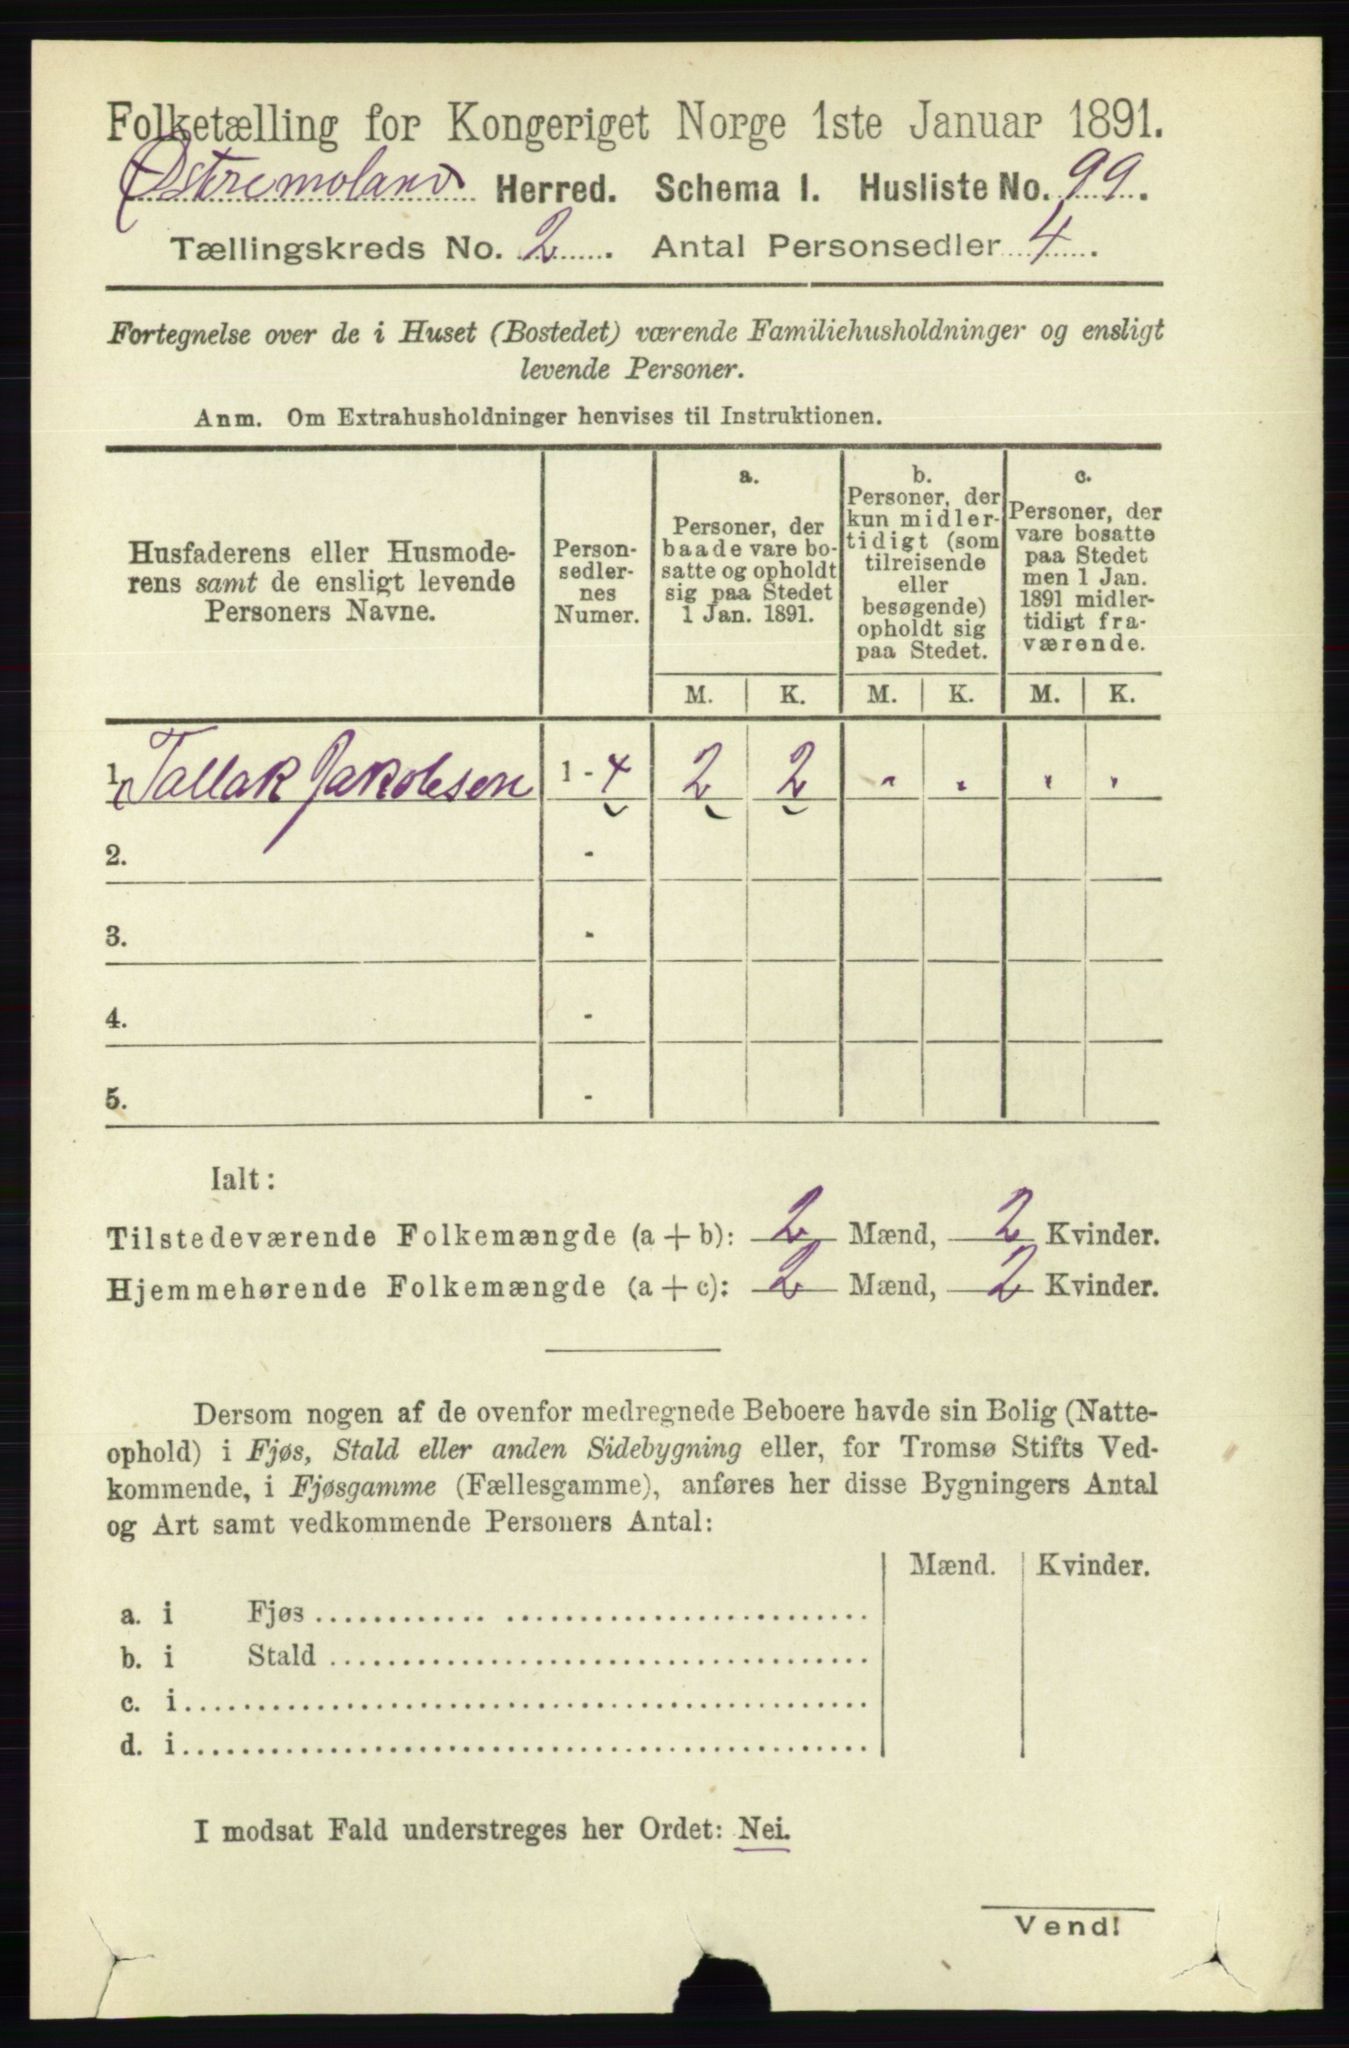 Folketælling for Kongeriget Norge 1ste Januar 1891.
Østremoland Herred. Schema I. Husliste No. 99.
Tællingskreds No. 2. Antal Personsedler 4.
Fortegnelse over de i Huset (Bostedet) værende Familiehusholdninger og ensligt
levende Personer.
Anm. Om Extrahusholdninger henvises til Instruktionen.
Husfaderens eller Husmode-
rens samt de ensligt levende
Personers Navne.
Person-
sedler-
nes
Numer.
a.
Personer, der
baade vare bo-
satte og opholdt
sig paa Stedet
1 Jan. 1891.
b.
Personer, der
kun midler-
tidigt (som
tilreisende
eller
besøgende)
opholdt sig
paa Stedet.
c.
Personer, der
vare bosatte
paa Stedet
men 1 Jan.
1891 midler-
tidigt fra-
værende.
M. K. M. K. M. K.
1. Tallak Jakobsen 1 - 4 2 2 " " " "
2. -
3. -
4. -
5. -
Ialt:
Tilstedeværende Folkemængde (a + b): 2 Mænd, 2 Kvinder.
Hjemmehørende Folkemængde (a + c): 2 Mænd, 2 Kvinder.
Dersom nogen af de ovenfor medregnede Beboere havde sin Bolig (Natte-
ophold) i Fjøs, Stald eller anden Sidebygning eller, for Tromsø Stifts Ved-
kommende, i Fjøsgamme (Fællesgamme), anføres her disse Bygningers Antal
og Art samt vedkommende Personers Antal:
Mænd. Kvinder.
a. i Fjøs
b. i Stald
c. i
d. i
I modsat Fald understreges her Ordet: Nei.
Vend!